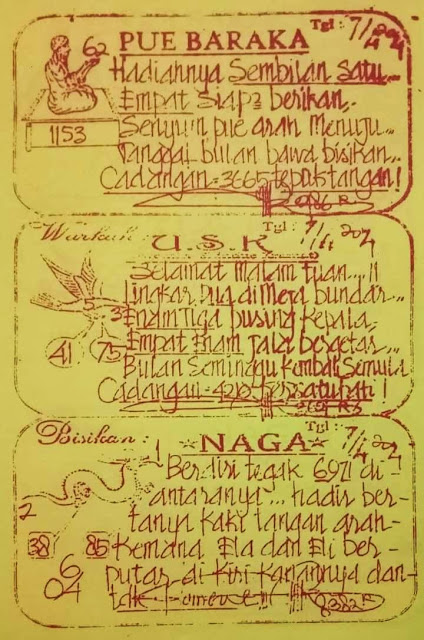 62 PUE BARAKA Tgl : 7/4 2024
Hadiannya Sembilan Satu
Empat Siap2 berikan,
Senyum pue arah Menuju...
1153
Tanggal bulan bawa bisikan...
Cadangan = 3665 tepuk tangan!
Tgl : 7/4 2024
U.S.K
Selamat Malam Tuan....!!
Lingkar Dua di Meja bundar...
Enam Tiga pusing kepala,
41 75
Empat Enam Jala bergetar...
Bulan Seminggu Kembali Semula
Cadangan
Bisikan : NAGA Tgl : 7/4 2024
Berdiri tegak 6971 di
antaranya... hadir ber-
2
tanya kaki tangan arah
38 85 Kemana Ela dan Eli ber-
6
putar di Kiri Kanannya dan-
04